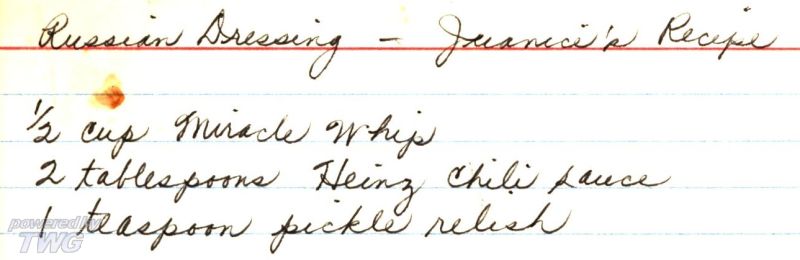 Russian Dressing – Juanici's Recipe
1/2 cup Miracle Whip
2 tablespoons Heinz chili sauce
1 teaspoon pickle relish
powered by
TWG